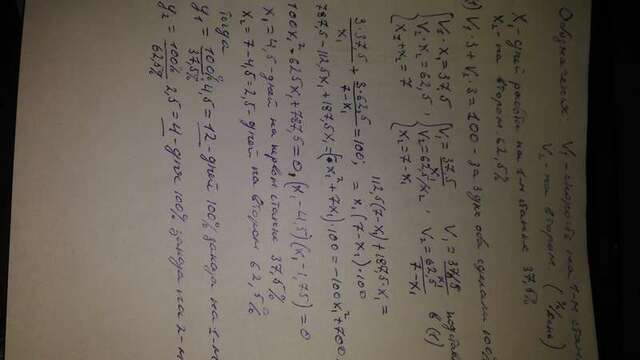 Обозначения V₁ - скорость на 1-м
V₂ на втором (%/день)
X₁ - дней работы на 1-м станке 37,5%
X₂ - на втором 62,5%
1) V₁·3 + V₂·3 = 100 - за 3 дня оба сделали
{V₁·X₁ = 37,5 {V₁ = 37,5/X₁ V₁ = 37,5/X₁
{V₂·X₂ = 62,5, {V₂ = 62,5/X₂, V₂ = 62,5/(7-X₁) в (1)
{X₂+X₁ = 7 {X₂ = 7-X₁
3·37,5/X₁ + 3·62,5/(7-X₁) = 100; 112,5(7-X₁)+187,5·X₁ =
= X₁(7-X₁)·100
787,5-112,5X₁+187,5X₁=(-X₁²+7X₁)·100=-100X₁²+700
100X₁²-625X₁+787,5=0, (X₁-4,5)(X₁-1,75)=0
X₁=4,5-дней на первом станке 37,5%
X₂=7-4,5=2,5-дней на втором 62,5%
Тогда
y₁ = 100%/37,5% 4,5=12-дней 100% заказа на 1-м
y₂ = 100%/62,5% 2,5=4-дня 100% заказа на 2-м